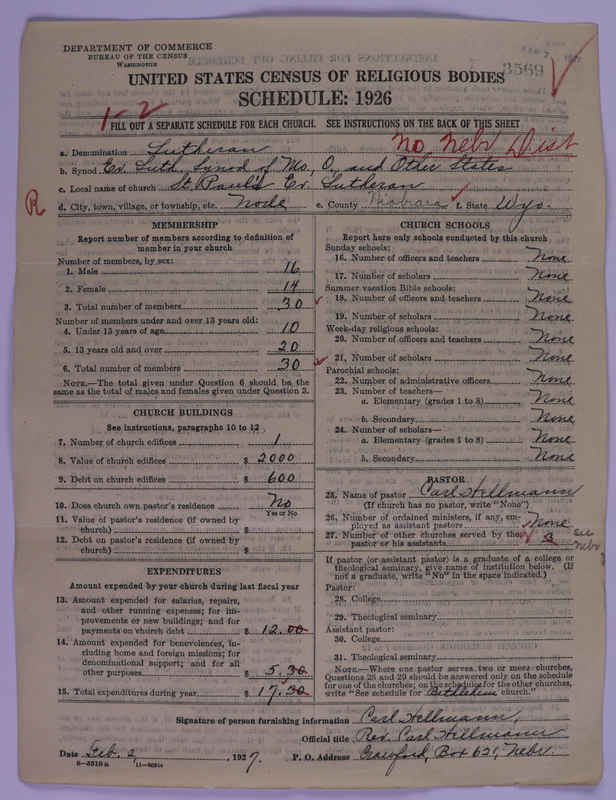 DEPARTMENT OF COMMERCE
BUREAU OF THE CENSUS
WASHINGTON
FEB 7
3569
UNITED STATES CENSUS OF RELIGIOUS BODIES
SCHEDULE: 1926
1-2
FILL OUT A SEPARATE SCHEDULE FOR EACH CHURCH. SEE INSTRUCTIONS ON THE BACK OF THIS SHEET
No. Nebr Dist
a. Denomination Lutheran
b. Synod Ev. Luth. Synod of Mo., O., and Other States
c. Local name of church St. Paul's Ev. Lutheran
R
d. City, town, village, or township, etc. Node e. County Niobrara f. State Wyo.
MEMBERSHIP
Report number of members according to definition of member in your church
Number of members, by sex:
1. Male 16
2. Female 14
3. Total number of members 30
Number of members under and over 13 years old:
4. Under 13 years of age 10
5. 13 years old and over 20
6. Total number of members 30
NOTE.—The total given under Question 6 should be the
same as the total of males and females given under Question 3.
CHURCH BUILDINGS
See instructions, paragraphs 10 to 12
7. Number of church edifices 1
8. Value of church edifices $ 2000
9. Debt on church edifices $ 600
10. Does church own pastor's residence No
Yes or No
11. Value of pastor's residence (if owned by
church) $
12. Debt on pastor's residence (if owned by
church) $
EXPENDITURES
Amount expended by your church during last fiscal year
13. Amount expended for salaries, repairs,
and other running expenses; for im-
provements or new buildings; and for
payments on church debt $ 12.00
14. Amount expended for benevolences, in-
cluding home and foreign missions; for
denominational support; and for all
other purposes $ 5.30
15. Total expenditures during year $ 17.30
CHURCH SCHOOLS
Report here only schools conducted by this church
Sunday schools:
16. Number of officers and teachers None
17. Number of scholars None
Summer vacation Bible schools:
18. Number of officers and teachers None
19. Number of scholars None
Week-day religious schools:
20. Number of officers and teachers None
21. Number of scholars None
Parochial schools:
22. Number of administrative officers None
23. Number of teachers—
a. Elementary (grades 1 to 8) None
b. Secondary None
24. Number of scholars—
a. Elementary (grades 1 to 8) None
b. Secondary None
PASTOR
25. Name of pastor Carl Hellmann
(If church has no pastor, write "None")
26. Number of ordained ministers, if any, em-
ployed as assistant pastors None
27. Number of other churches served by the
pastor or his assistants 3
see Nebr
If pastor (or assistant pastor) is a graduate of a college or
theological seminary, give name of institution below. (If
not a graduate, write "No" in the space indicated.)
Pastor:
28. College
29. Theological seminary
Assistant pastor:
30. College
31. Theological seminary
NOTE.—Where one pastor serves two or more churches,
Questions 28 and 29 should be answered only on the schedule
for one of the churches; on the schedules for the other churches,
write "See schedule for Bethlehem church."
Signature of person furnishing information Carl Hellmann,
Official title Rev. Carl Hillmann
Date Feb. 2, 1927. P. O. Address Crawford, Box 621, Nebr.
8-5518 a